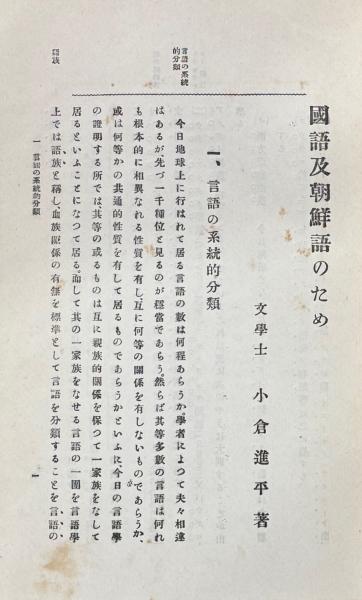 國語及朝鮮語のため
文學士 小倉進平著
一、言語の系統的分類
言語の系統
的分類
今日地球上に行はれて居る言語の數は何程あらうか。學者によつて夫々相違
はあるが、先づ一千種位と見るのが穩當であらう。然らば其等多數の言語は何れ
も根本的に相異なれる性質を有し、互に何等の關係を有しないものであらうか、
或は何等かの共通的性質を有して居るものであらうかといふに、今日の言語學
の證明する所では、其等の或るものは互に親族的關係を保つて一家族をなして
居るといふことになつて居る。而して其の一家族をなせる言語の一團を言語學
語族
上では語族と稱し、血族關係の有無を標準として言語を分類することを言語の
一 言語の系統的分類
一